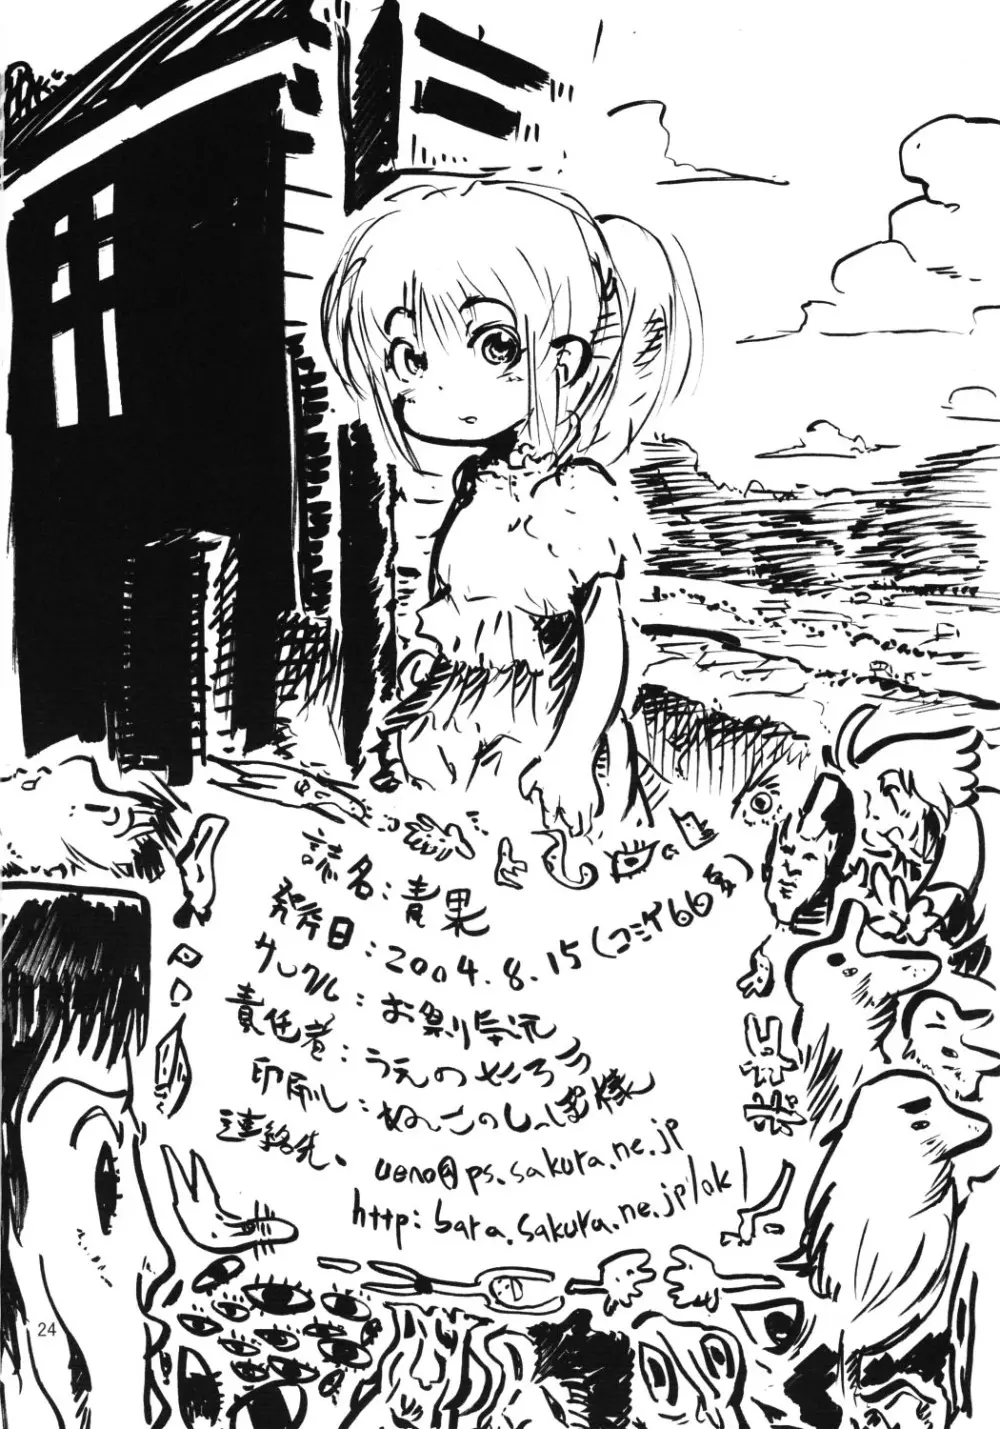 誌名:青果
発行日:2004.8.15(コミケ66夏)
サークル:お祭り気流
責任者:うえのせくろう
印刷:ねこのしっぽ様
連絡先、
ueno@ps.sakura.ne.jp
http:bara.sakura.ne.jp/ok/
24